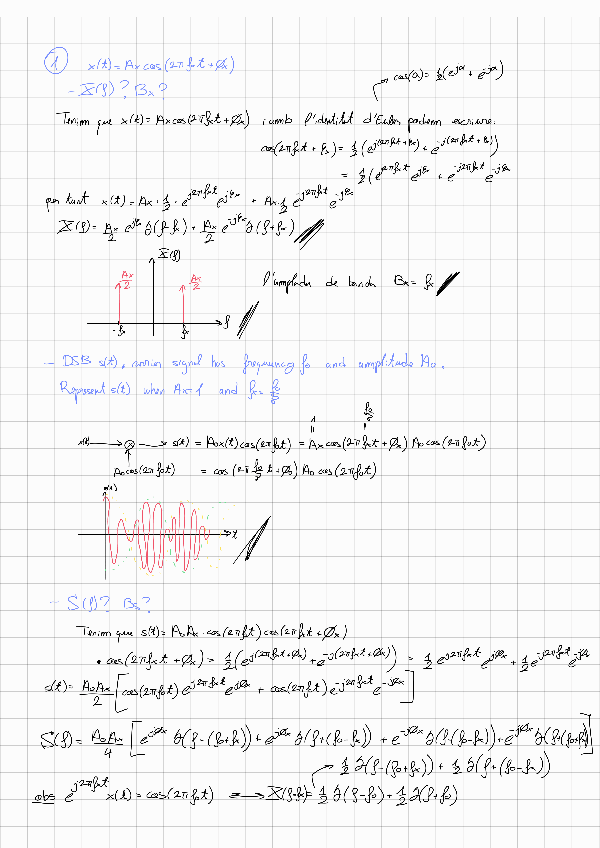 1 x(t) = Ax cos(2πfxt + Øx)
cos(α) = ½(e^jα + e^-jα)
- X(f)? Bx?
Tenim que x(t) = Ax cos(2πfxt + Øx) i amb l'identitat d'Euler podem escriure:
cos(2πfxt + Øx) = 1/2 (e^j(2πfxt + Øx) + e^-j(2πfxt + Øx))
= 1/2 (e^j2πfxt e^jØx + e^-j2πfxt e^-jØx
per tant x(t) = Ax · 1/2 · e^j2πfxt e^jØx + Ax · 1/2 e^-j2πfxt e^-jØx
X(f) = Ax/2 e^jØx δ(f-fx) + Ax/2 e^-jØx δ(f+fx)
X(f)
Ax/2 Ax/2
l'amplada de banda Bx = fx
-fx fx f
- DSB s(t), carrier signal has frequency fo and amplitude Ao.
Represent s(t) when Ax=1 and fx = fo/5
1 fo/5
x(t) → ⊗ → s(t) = Ao x(t) cos(2πfot) = Ax cos(2πfxt + Øx) Ao cos(2πfot)
Ao cos(2πfot) = cos(2π fo/5 t + Øx) Ao cos(2πfot)
s(t)
t
- S(f)? Bs?
Tenim que s(t) = Ao Ax · cos(2πfot) cos(2πfxt + Øx)
• cos(2πfxt + Øx) = 1/2 (e^j(2πfxt + Øx) + e^-j(2πfxt + Øx)) = 1/2 e^j2πfxt e^jØx + 1/2 e^-j2πfxt e^-jØx
s(t) = AoAx/2 [cos(2πfot) e^j2πfxt e^jØx + cos(2πfot) e^-j2πfxt e^-jØx]
S(f) = AoAx/4 [e^jØx δ(f-(fo+fx)) + e^jØx δ(f+(fo-fx)) + e^-jØx δ(f-(fo-fx)) + e^-jØx δ(f+(fo+fx))]
1/2 δ(f-(fo+fx)) + 1/2 δ(f+(fo-fx))
obs e^j2πfxt x(t) = cos(2πfot) → X(f-fx) = 1/2 δ(f-fo) + 1/2 δ(f+fo)